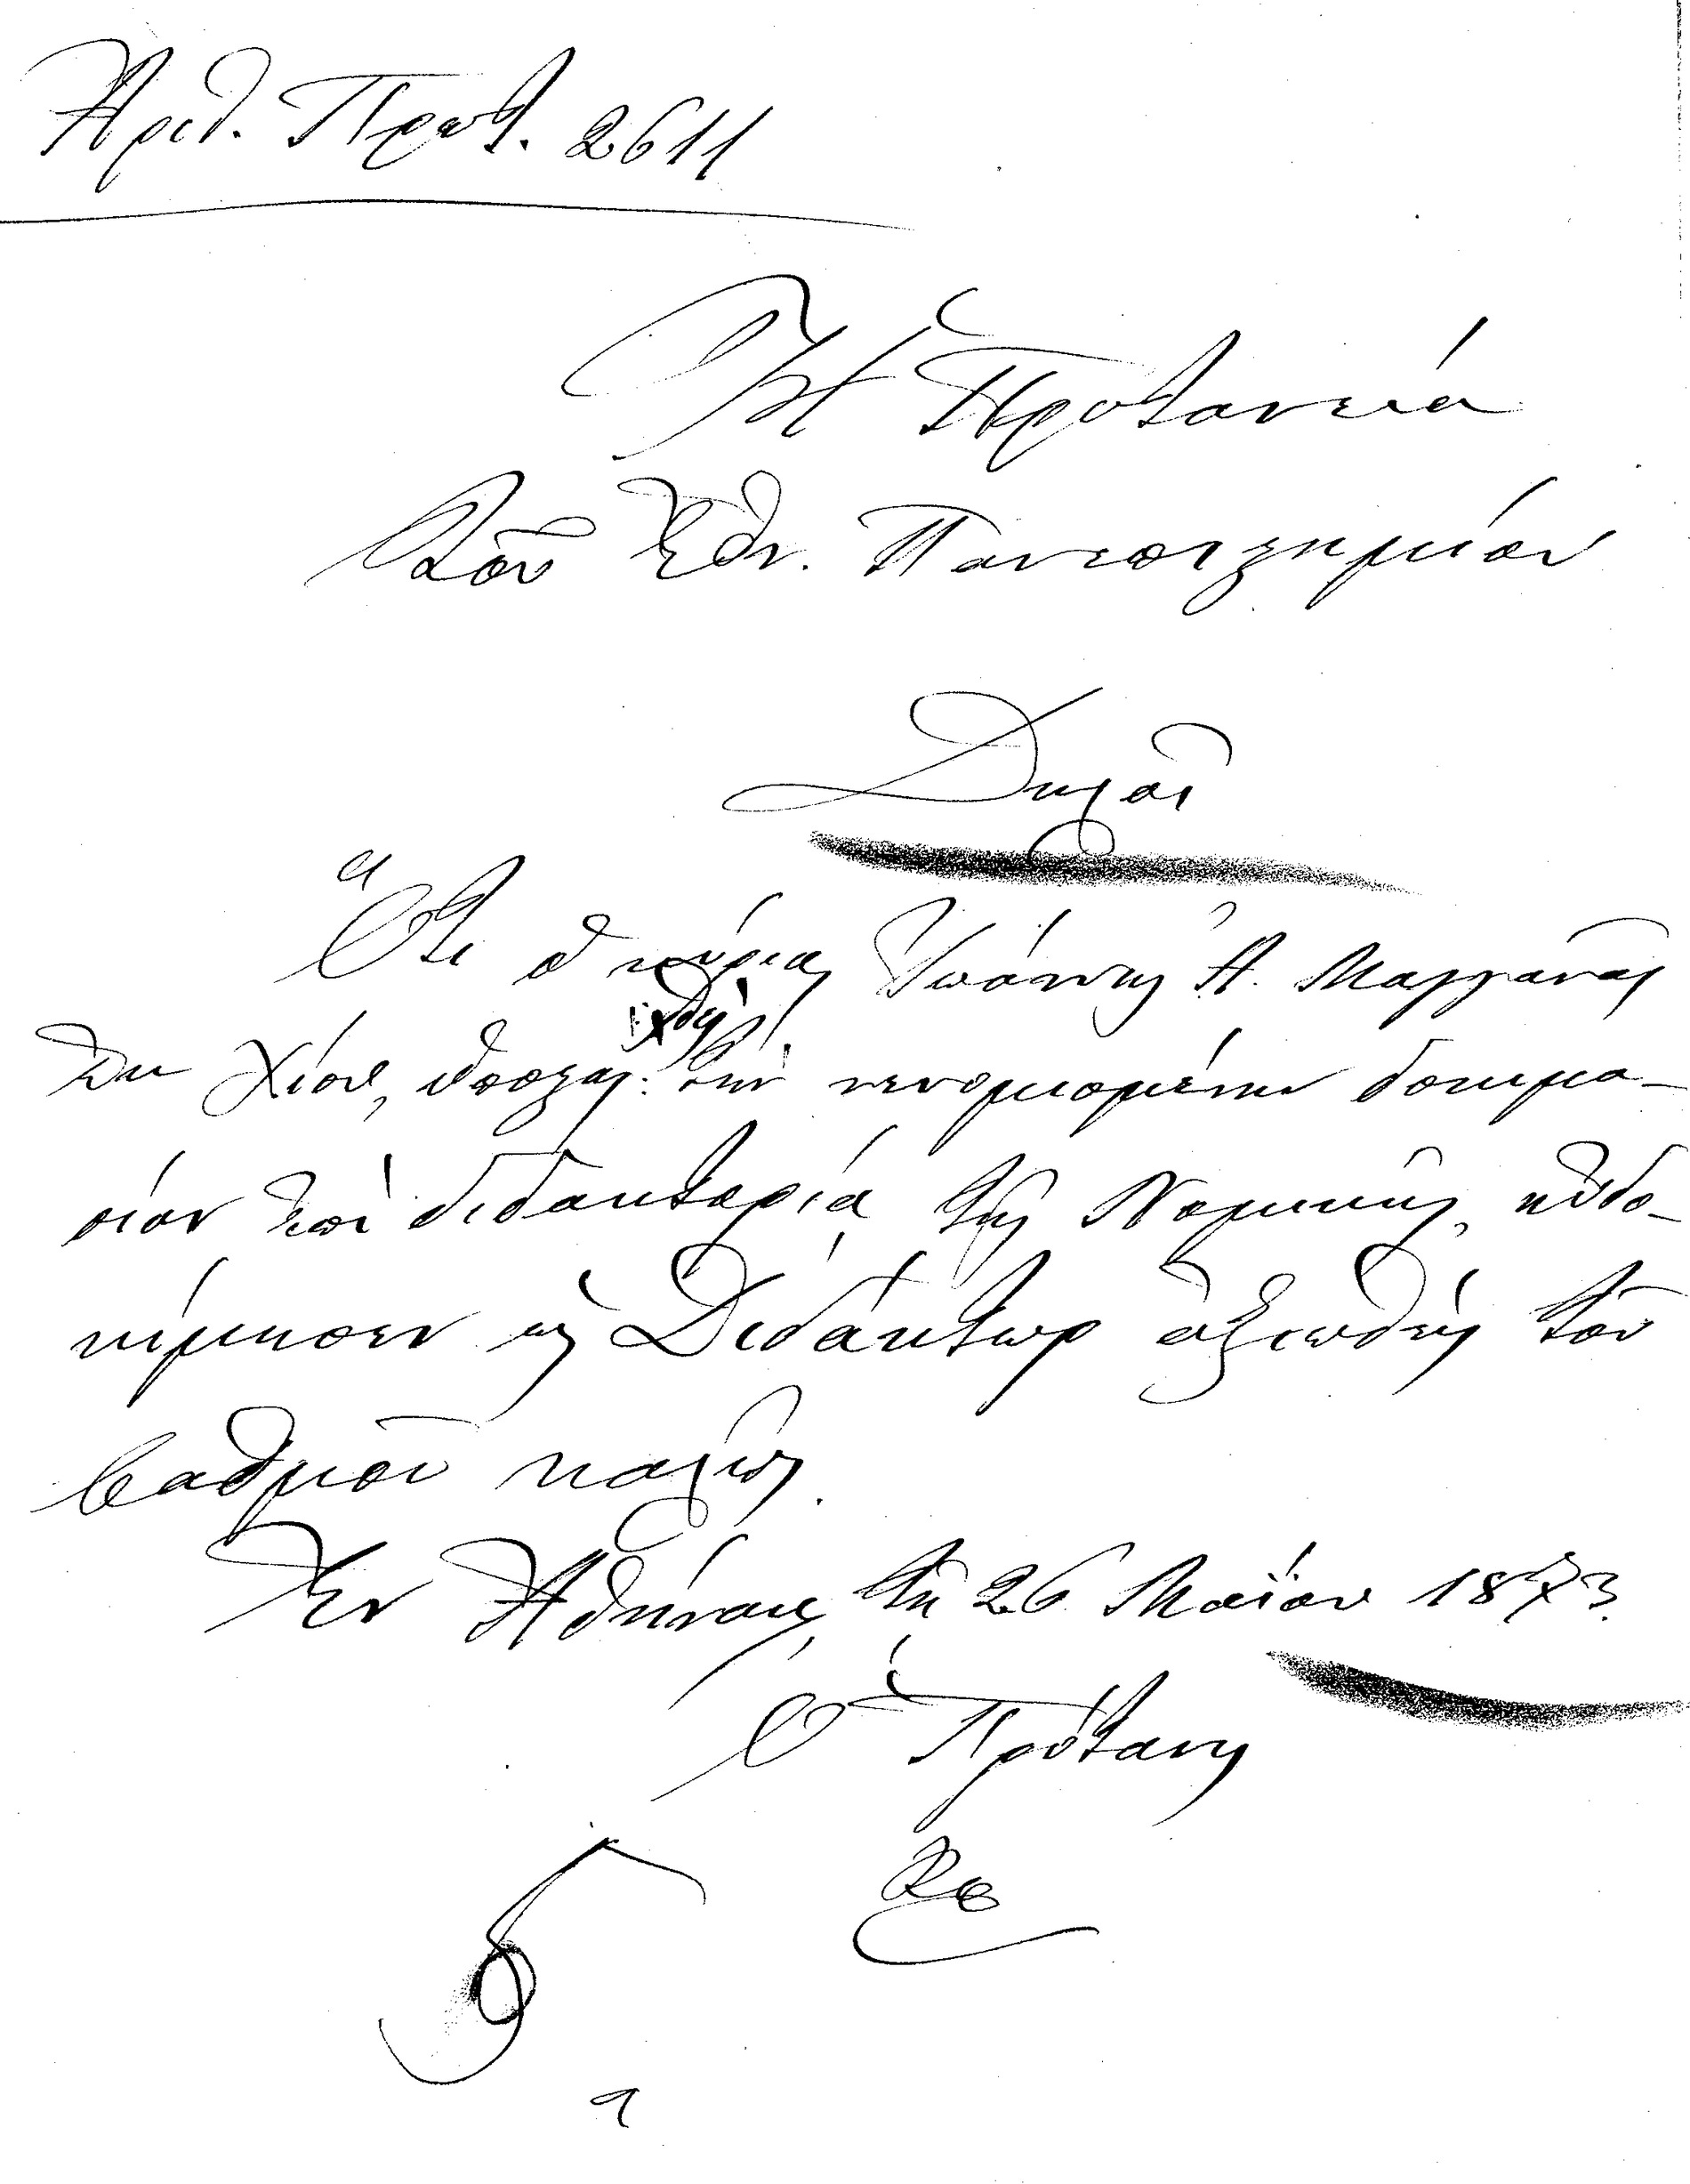 Ἀριθ. Πρωτ. 2611
Ἡ Πρυτανεία
τοῦ Ἐθν. Πανεπιστημίου
Δηλοῖ
Ὅτι ὁ κύριος Ἰωάννης Ἀ. Μαργανας
ἐκ Χίου, ὑποστὰς τὴν νενομισμένην δοκιμα-
σίαν ἐπὶ διδακτορίᾳ τῆς Νομικῆς, ηὐδο-
κίμησεν ὡς Διδάκτωρ ἀξιωθεὶς τοῦ
βαθμοῦ καλῶς.
Ἐν Ἀθήναις, τῇ 26 Μαΐου 1873.
Ὁ Πρύτανις